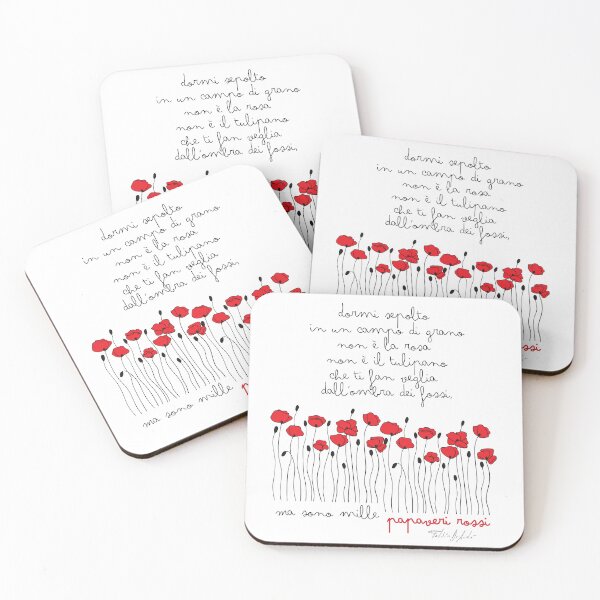 dormi sepolto
in un campo di grano
non è la rosa
non è il tulipano
che ti fan veglia
dall'ombra dei fossi,
dormi sepolto
in un campo di grano
non è la rosa
non è il tulipano
che ti fan veglia
dall'ombra dei fossi,
rossi
dormi sepolto
in un campo di grano
non è la rosa
non è il tulipano
che ti fan veglia
dall'ombra dei fossi,
ma sono mille
dormi sepolto
in un campo di grano
non è la rosa
non è il tulipano
che ti fan veglia
dall'ombra dei fossi,
ma sono mille papaveri rossi